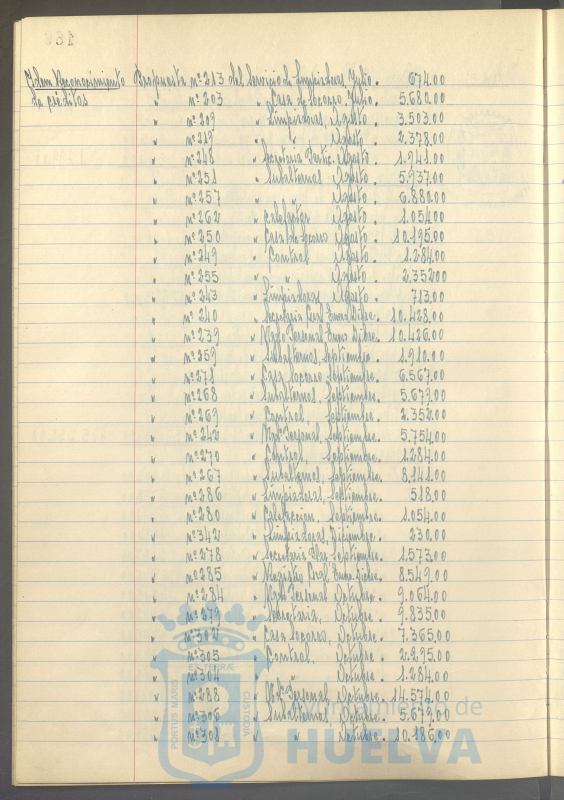 Idem Reconocimiento Propuesta nº 213 del Servicio de Limpiadoras, Julio. 674.00
de créditos " nº 203 " Casa de Socorro, Julio. 5.680.00
" nº 209 " Limpiadoras, Agosto. 3.503.00
" nº 219 " " Agosto. 2.378.00
" nº 248 " Secretaria Partic. Agosto. 1.941.00
" nº 251 " Subalternos Agosto. 5.937.00
" nº 257 " " Agosto. 6.880.00
" nº 262 " Agosto. 1.054.00
" nº 250 " Casa de Socorro Agosto. 10.195.00
" nº 249 " Central Agosto. 1.284.00
" nº 255 " " Agosto. 2.352.00
" nº 243 " Limpiadoras Agosto. 713.00
" nº 240 " 10.428.00
" nº 239 " Negdo Personal Enero Dibre. 10.426.00
" nº 259 " Subalternos, Septiembre. 1.910.00
" nº 271 " Casa Socorro Septiembre. 6.567.00
" nº 268 " Subalternos, Septiembre. 5.679.00
" nº 269 " Central, Septiembre. 2.352.00
" nº 242 " Personal, Septiembre. 5.754.00
" nº 270 " Central, Septiembre. 1.284.00
" nº 267 " Subalternos, Septiembre. 8.141.00
" nº 286 " Limpiadoras, Septiembre. 518.00
" nº 280 " Calefacción, Septiembre. 1.054.00
" nº 342 " Limpiadoras, Diciembre. 230.00
" nº 278 " Secretaria Septiembre. 1.573.00
" nº 285 " Registro Gral. Enero Dicbre. 8.549.00
" nº 284 " Negdo Personal Octubre. 9.064.00
" nº 279 " Secretaria, Octubre. 9.835.00
" nº 302 " Casa Socorro, Octubre. 7.365,00
" nº 305 " Central, Octubre. 2.295.00
" nº 304 " " Octubre. 1.284.00
" nº 288 " Personal, Octubre. 14.574.00
" nº 306 " Subalternos, Octubre. 5.679.00
" nº 308 " " Octubre. 10.186,00
PORTUS MARIS ET TERRÆ CUSTODIA
Ayuntamiento de
HUELVA